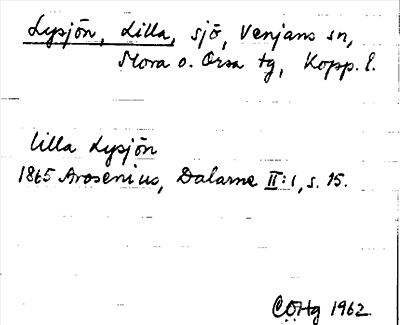 Lysjön, Lilla, sjö, Venjans sn,
Mora o. Orsa tg, Kopp. l.
lilla Lysjön
1865 Arosenius, Dalarne II:1, s. 15.
CÖHg 1962